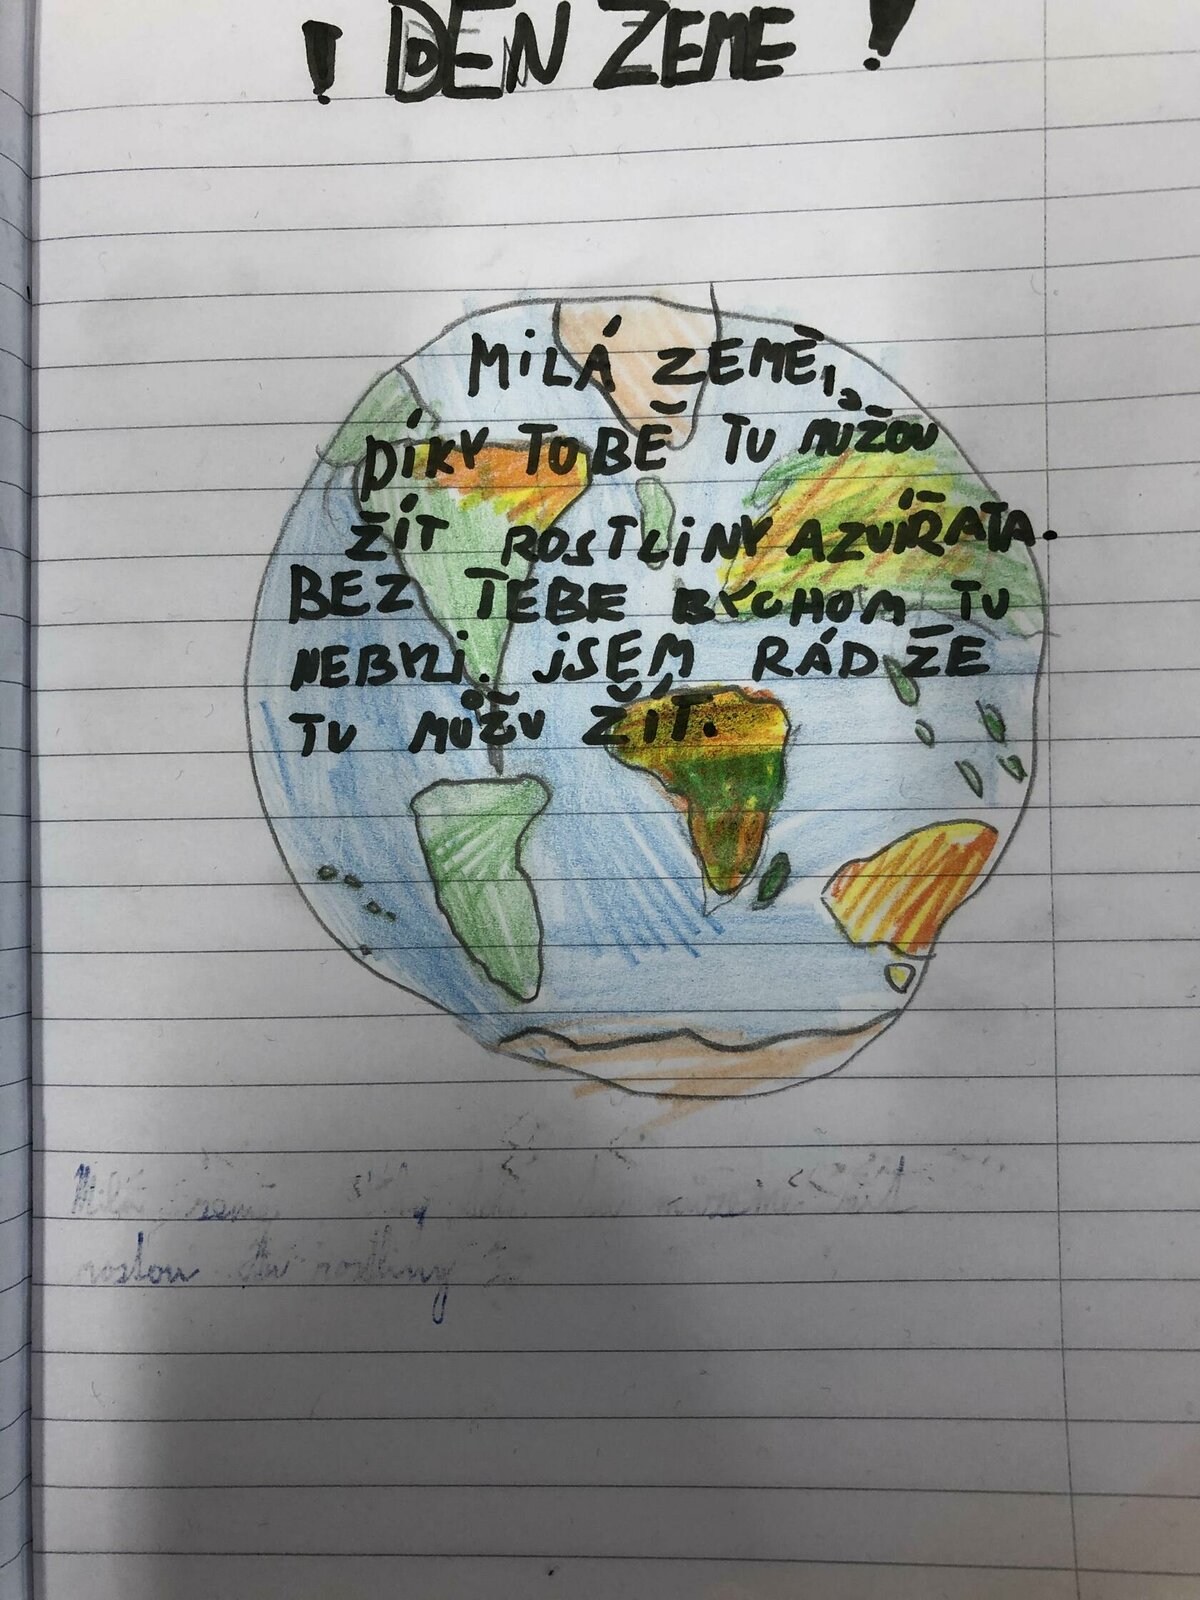 ! DEN ZEME !
MILÁ ZEMĚ,
DÍKY TOBĚ TU MŮŽOU
ŽÍT ROSTLINY A ZVÍŘATA.
BEZ TEBE BYCHOM TU
NEBYLI. JSEM RÁD ŽE
TU MŮŽU ŽÍT.
Milá země
rostou tu rostliny